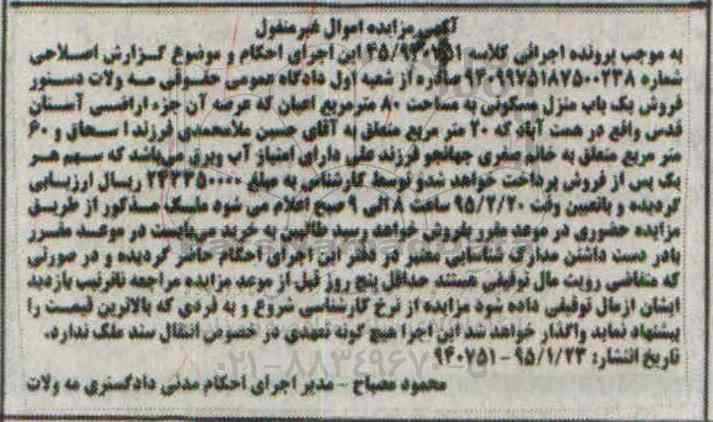 آگهی مزایده اموال غیرمنقول
به موجب پرونده اجرائی کلاسه ۴۵/۹۴۰۷۵۱ این اجرای احکام و موضوع گزارش اصلاحی
شماره ۹۴۰۹۹۷۵۱۸۷۵۰۰۲۳۸ صادره از شعبه اول دادگاه عمومی حقوقی مه ولات دستور
فروش یک باب منزل مسکونی به مساحت ۸۰ مترمربع اعیان که عرصه آن جزء اراضی آستان
قدس واقع در همت آباد که ۲۰ متر مربع متعلق به آقای حسین ملامحمدی فرزند اسحاق و ۶۰
متر مربع متعلق به خانم صغری جهانجو فرزند علی دارای امتیاز آب وبرق می‌باشد که سهم هر
یک پس از فروش پرداخت خواهد شدو توسط کارشناس به مبلغ ۲۴۲۳۵۰۰۰۰ ریال ارزیابی
گردیده و باتعیین وقت ۹۵/۲/۲۰ ساعت ۸ الی ۹ صبح اعلام می شود ملک مذکور از طریق
مزایده حضوری در موعد مقرر بفروش خواهد رسید طالبین به خرید می‌بایست در موعد مقرر
بادر دست داشتن مدارک شناسایی معتبر در دفتر این اجرای احکام حاضر گردیده و در صورتی
که متقاضی رویت مال توقیفی هستند حداقل پنج روز قبل از موعد مزایده مراجعه تاترتیب بازدید
ایشان ازمال توقیفی داده شود مزایده از نرخ کارشناسی شروع و به فردی که بالاترین قیمت را
پیشنهاد نماید واگذار خواهد شد این اجرا هیچ گونه تعهدی در خصوص انتقال سند ملک ندارد.
تاریخ انتشار: ۹۵/۱/۲۳ - ۹۴۰۷۵۱
۰۲۱-۸۸۳۴۹۶۷۰-۵
محمود مصباح - مدیر اجرای احکام مدنی دادگستری مه ولات